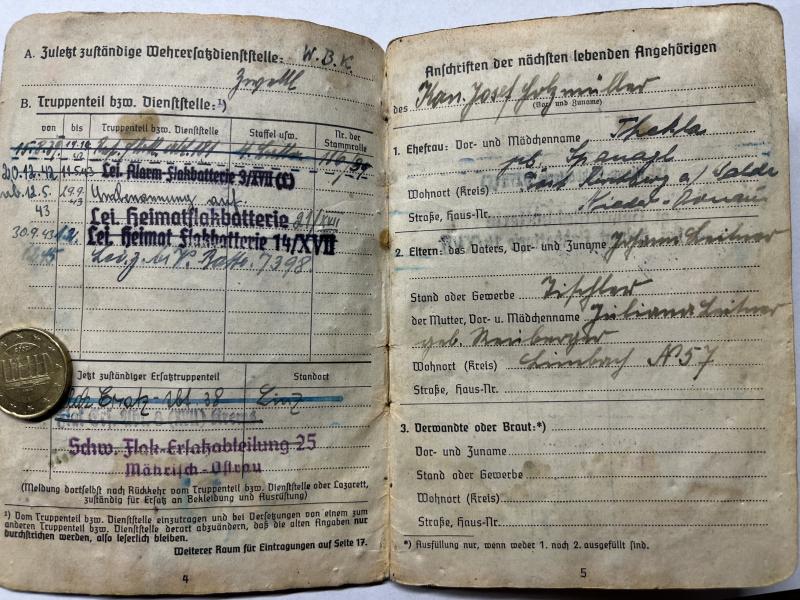 A. Zuletzt zuständige Wehrersatzdienststelle: W.B.K.
Zwettl
B. Truppenteil bzw. Dienststelle:¹)
von bis Truppenteil bzw. Dienststelle Staffel usw. Nr. der Stammrolle
15.8.39
20.12.42 11.5.43 Lei. Alarm-Flakbatterie 3/XVII (E)
ab 12.5. 43 29.9. 43 Umbenennung auf
Lei. Heimatflakbatterie 21/XVII
30.9.43 Lei. Heimat Flakbatterie 14/XVII
7398.
Jetzt zuständiger Ersatztruppenteil Standort
Ersatz 38 Linz
Schw. Flak-Ersatzabteilung 25
Mährisch-Ostrau
(Meldung dortselbst nach Rückkehr vom Truppenteil bzw. Dienststelle oder Lazarett,
zuständig für Ersatz an Bekleidung und Ausrüstung)
¹) Vom Truppenteil bzw. Dienststelle einzutragen und bei Versetzungen von einem zum
anderen Truppenteil bzw. Dienststelle derart abzuändern, daß die alten Angaben nur
durchstrichen werden, also leserlich bleiben.
Weiterer Raum für Eintragungen auf Seite 17.
4
Anschriften der nächsten lebenden Angehörigen
des Kan. Josef Holzmüller
(Vor- und Zuname)
1. Ehefrau: Vor- und Mädchenname Thekla
geb. Spanagl
Wohnort (Kreis) a/
Straße, Haus-Nr. Nieder-Donau
2. Eltern: des Vaters, Vor- und Zuname Johann Leitner
Stand oder Gewerbe Tischler
der Mutter, Vor- u. Mädchenname Juliana Leitner
geb. Neuberger
Wohnort (Kreis) Limbach No 57
Straße, Haus-Nr.
3. Verwandte oder Braut:*)
Vor- und Zuname
Stand oder Gewerbe
Wohnort (Kreis)
Straße, Haus-Nr.
*) Ausfüllung nur, wenn weder 1. noch 2. ausgefüllt sind.
5